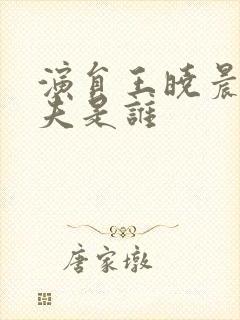 演員王曉晨
夫是誰
唐家墩